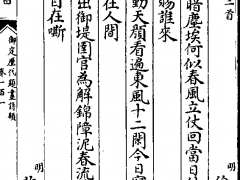 二首
暗塵埃何似春風立仗回當日
賜誰來
動天顏看遍東風十二閑今日
在人間
出御堤圉官為解錦障泥春流
日在嘶
御定歷代題畫詩類
卷一百一
明
明